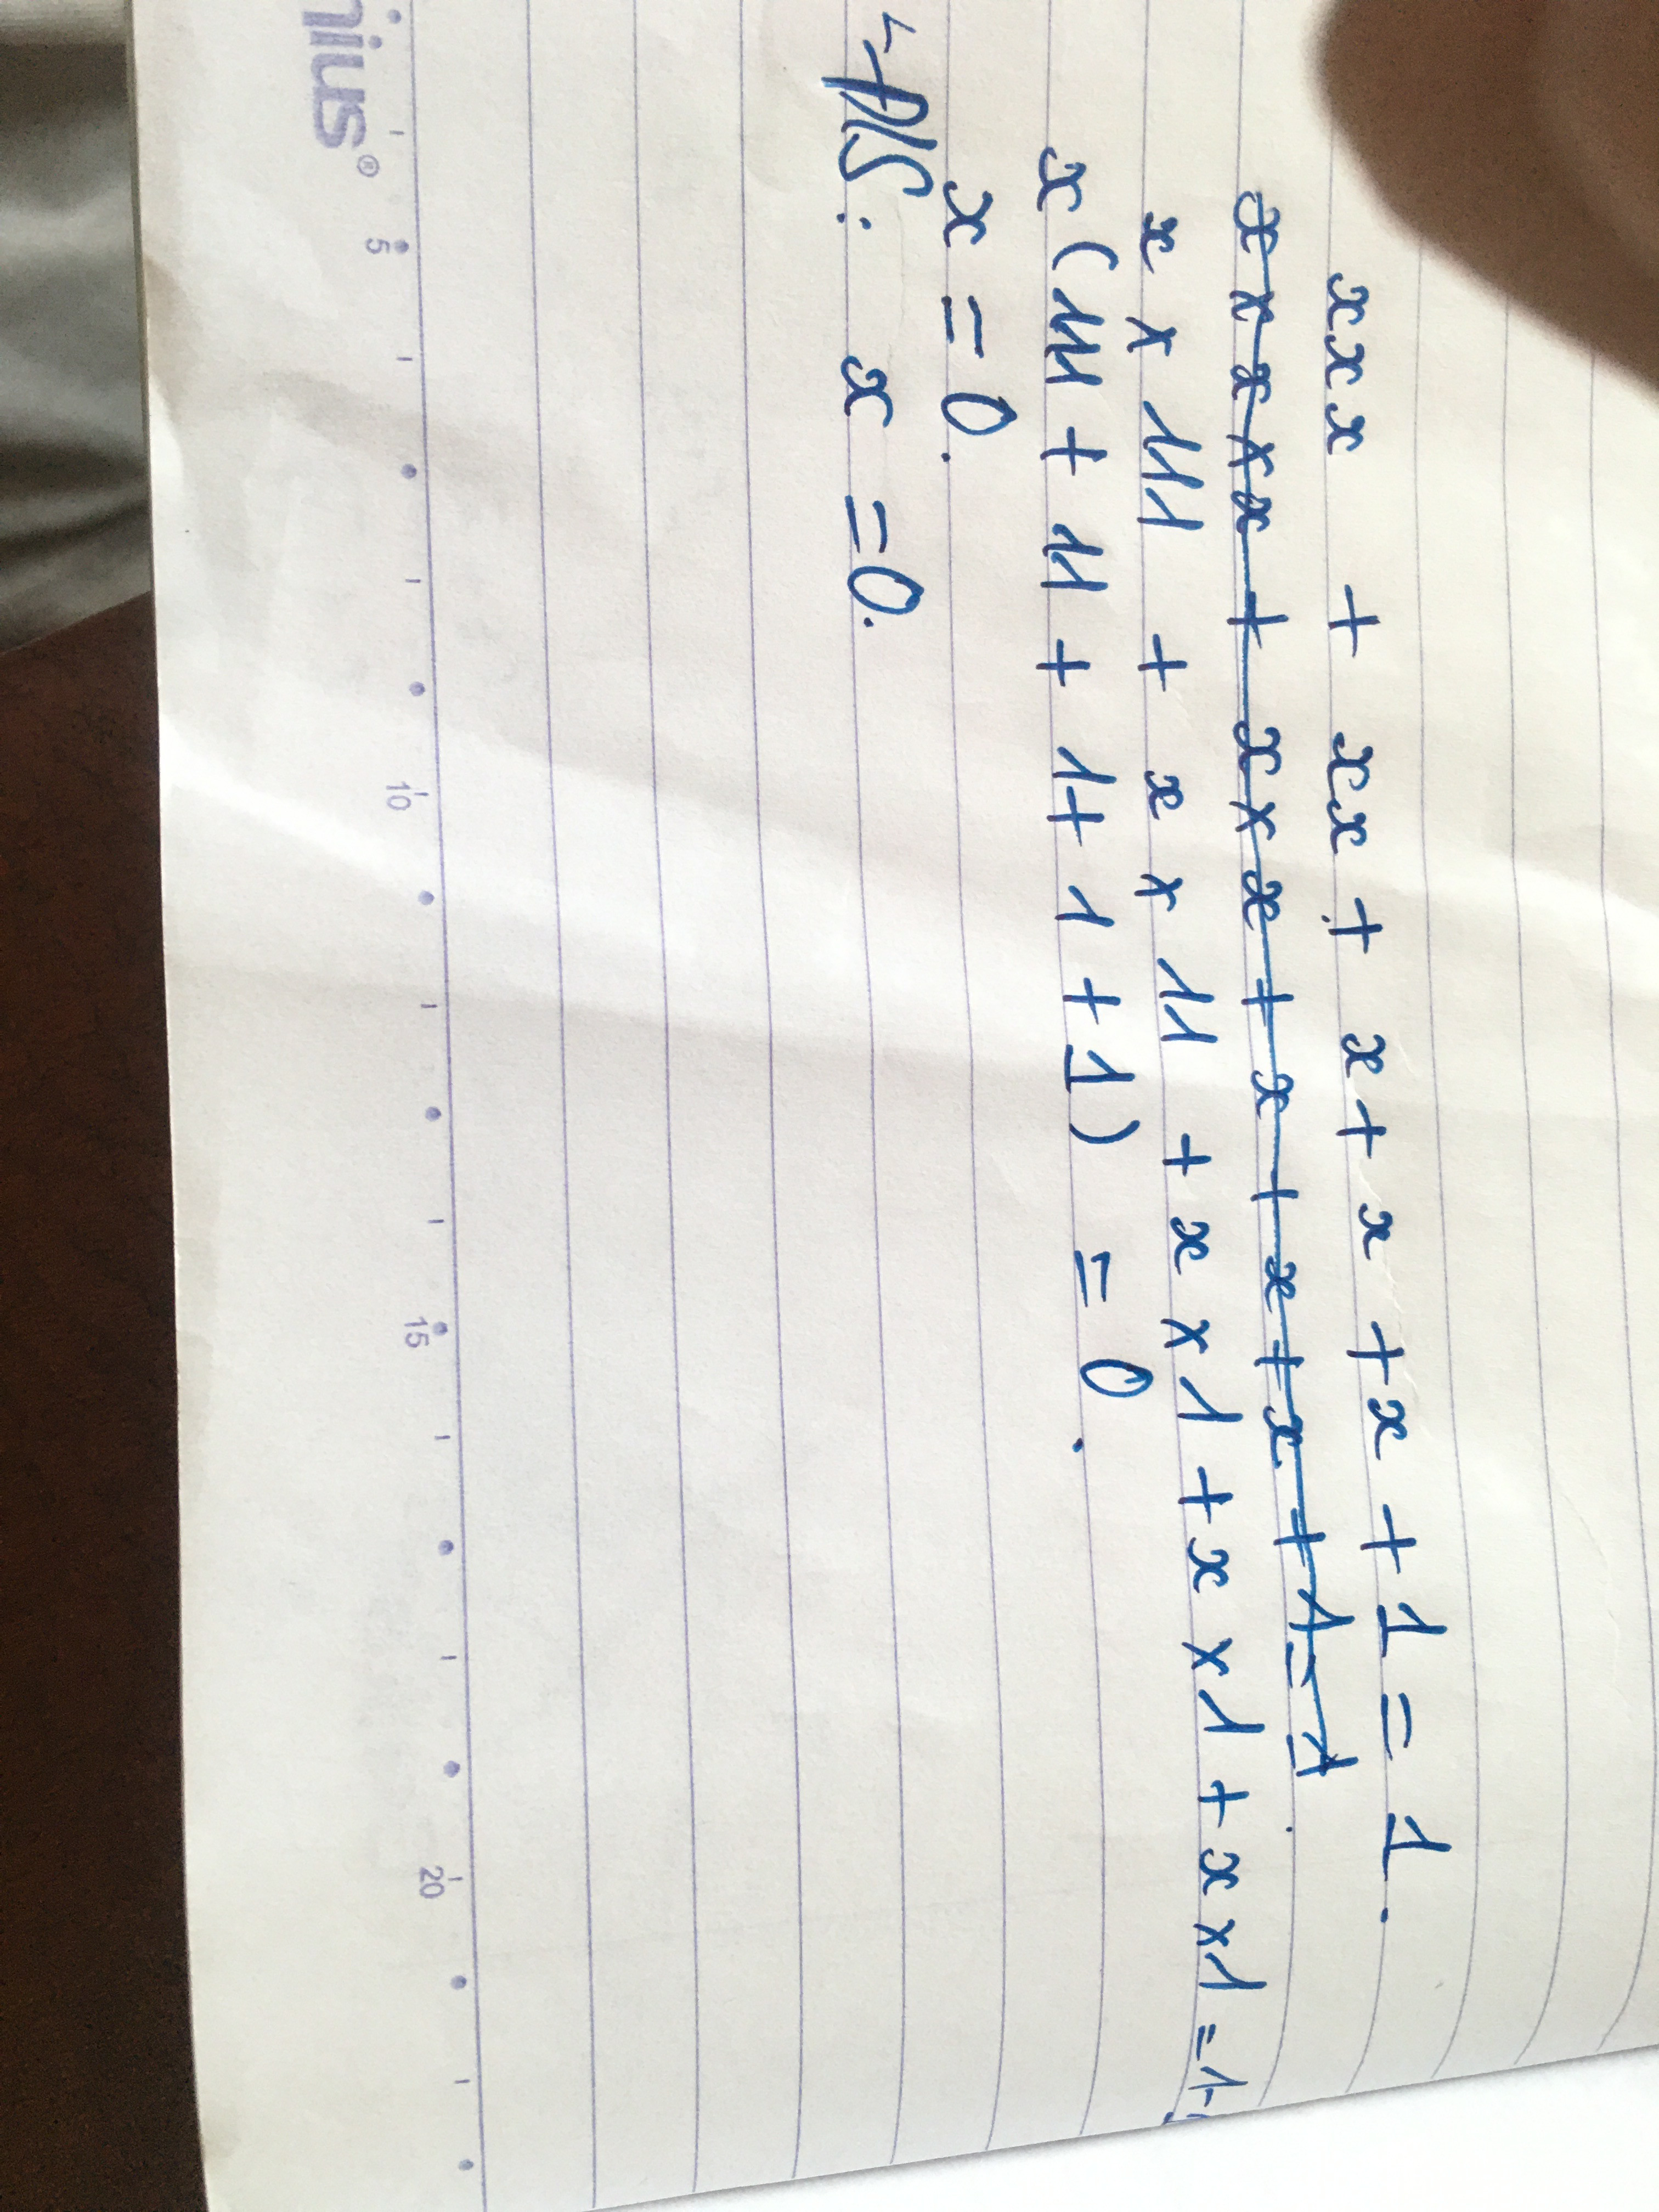 xxx + xx + x + x + x + 1 = 1.
x x x x x + x x x + x + x + x + 1 = 1.
x x 111 + x x 11 + x x 1 + x x 1 + x x 1 = 1-
x (111 + 11 + 1 + 1 + 1) = 0.
x = 0.
x = 0.
nius®
5 10 15 20